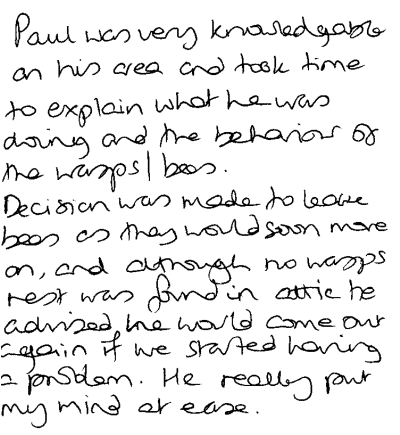 Paul was very knowledgable
on his area and took time
to explain what he was
doing and the behavior of
the wasps/bees.
Decision was made to leave
bees as they would soon move
on, and although no wasps
nest was found in attic he
advised he would come out
again if we started having
a problem. He really put
my mind at ease.